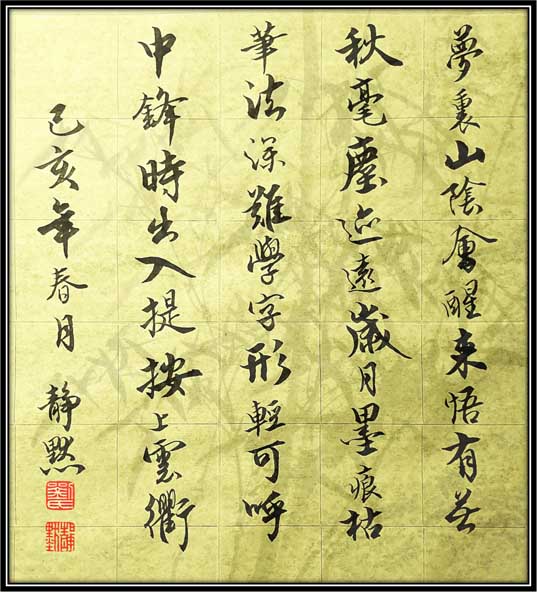 夢裏山陰會醒来悟有无
秋毫塵迹遠歲月墨痕枯
筆法深難學字形輕可呼
中鋒時出入提按上雲衢
己亥年春月 靜默